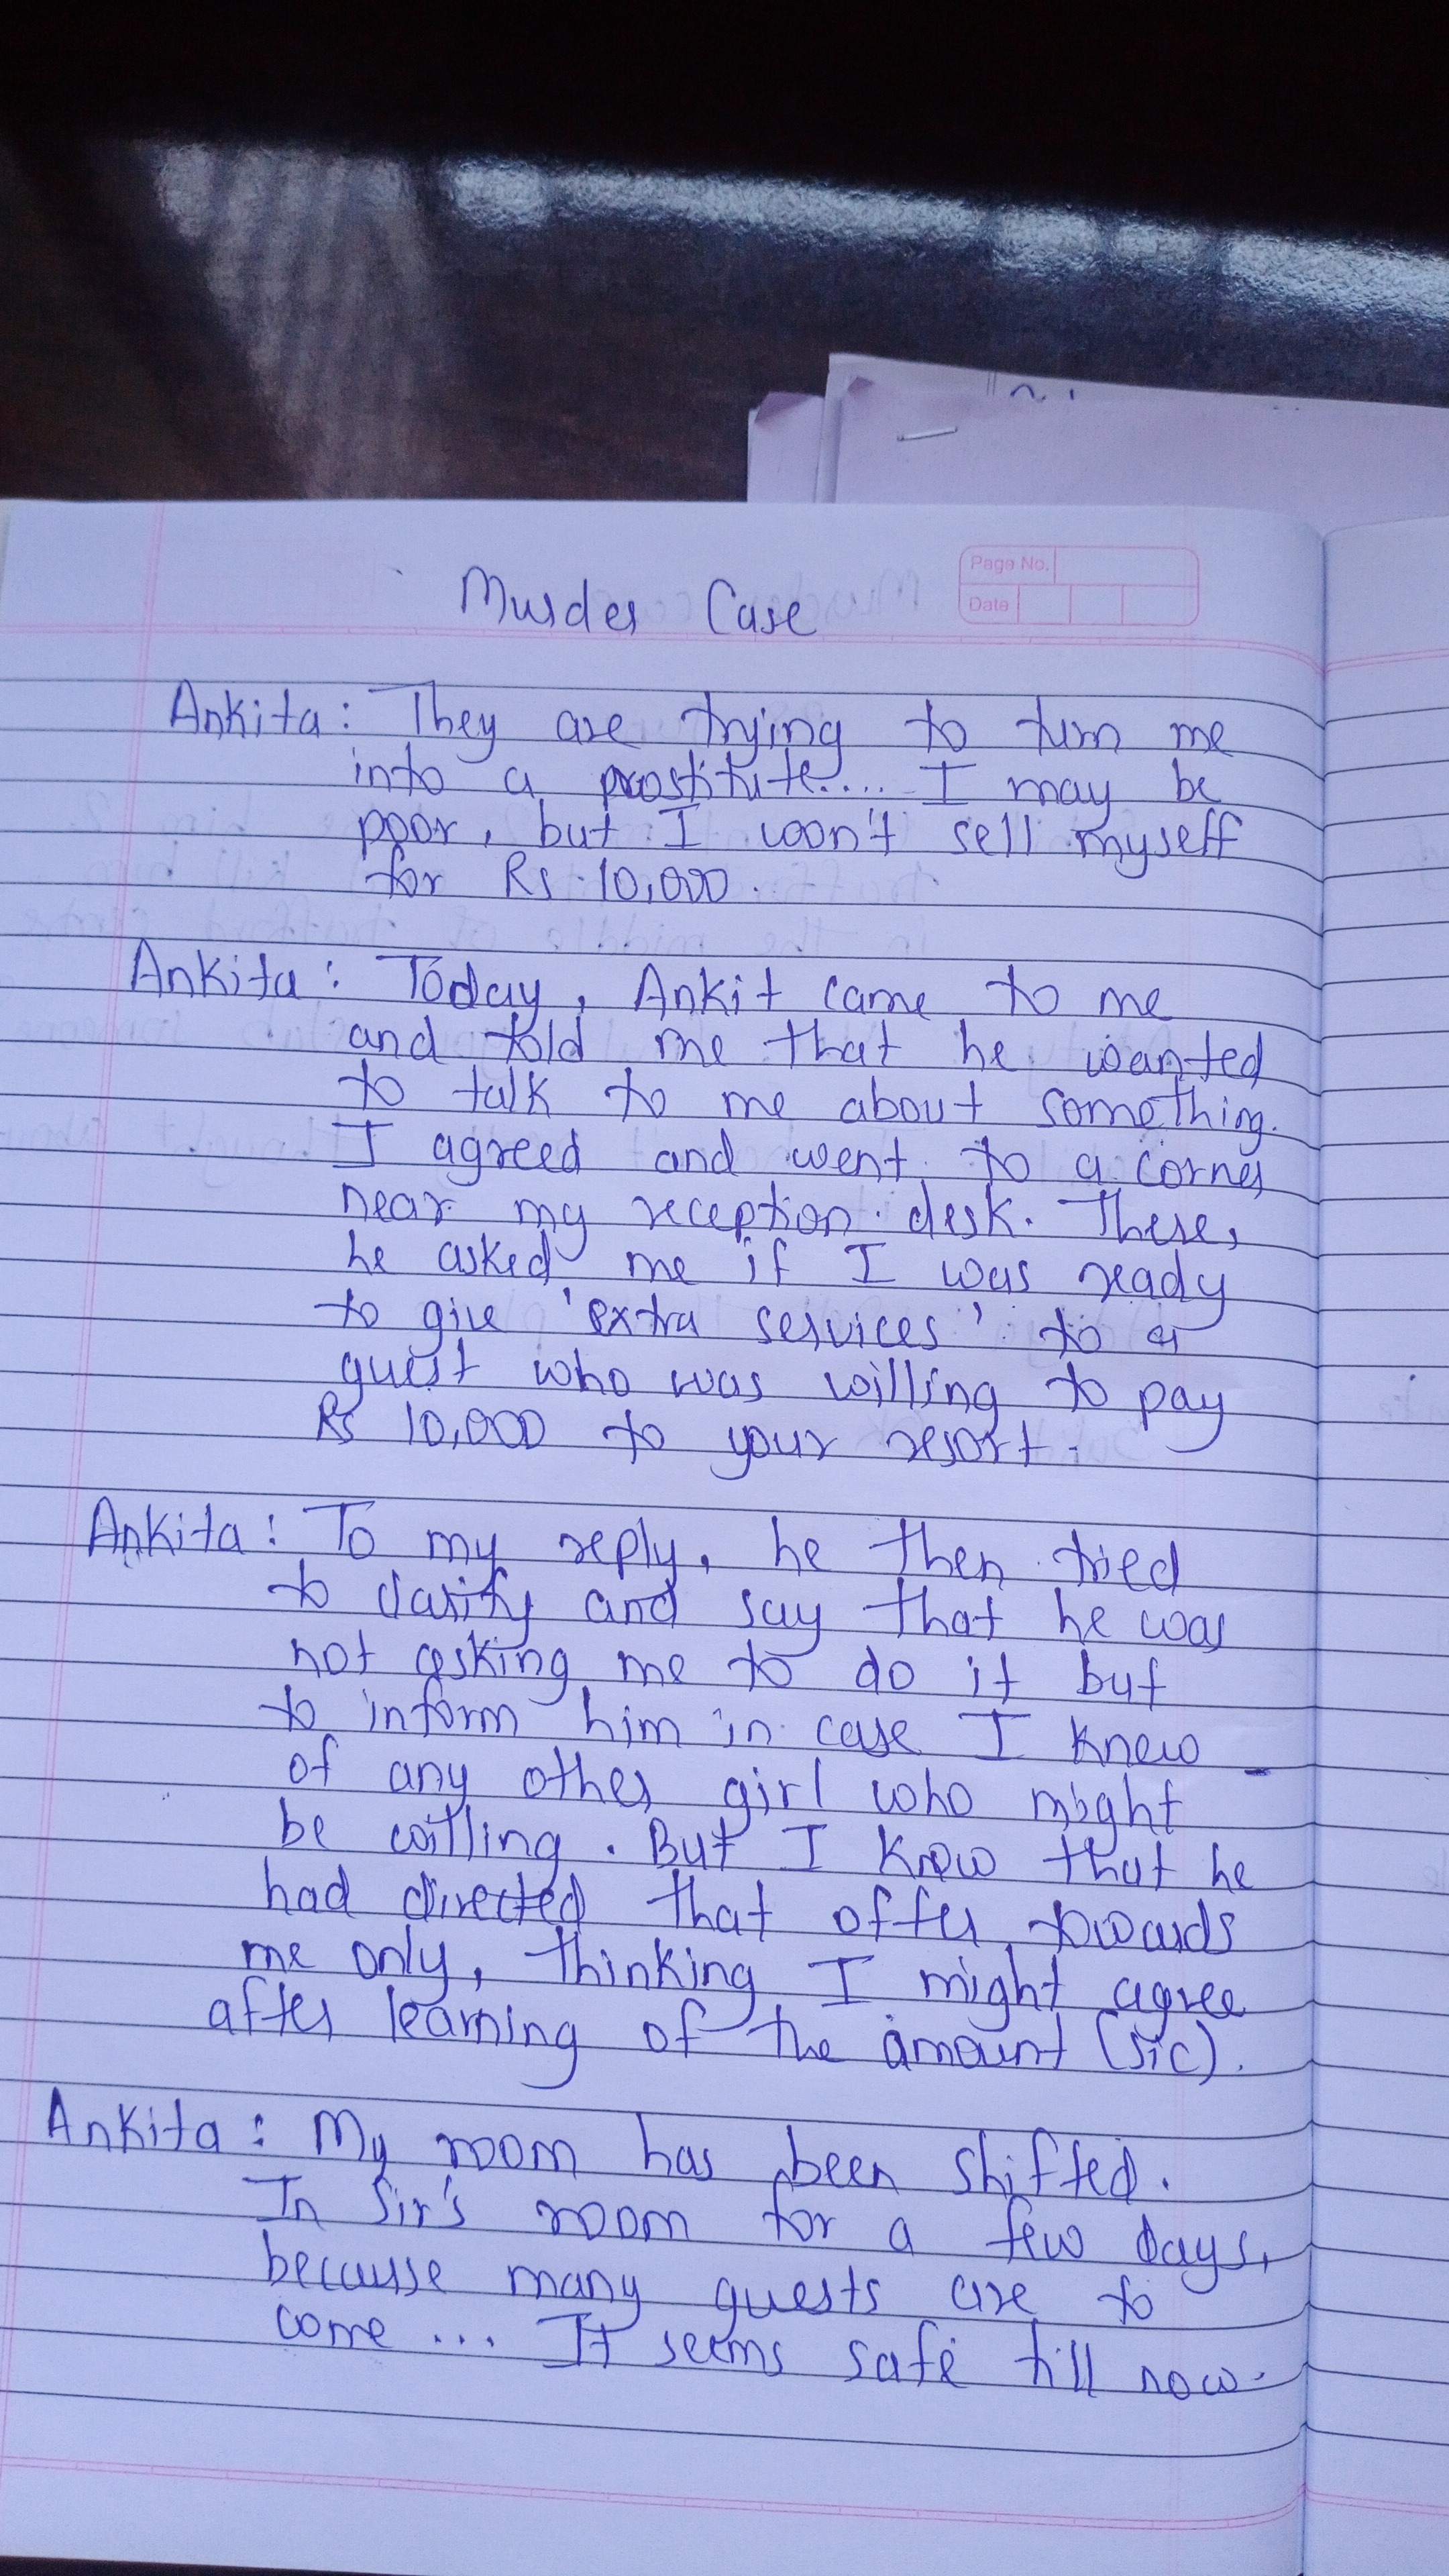 Murder Case
Page No.
Date
Ankita: They are trying to turn me
into a prostitute.... I may be
poor, but I won't sell myself
for Rs. 10,000.
Ankita: Today, Ankit came to me
and told me that he wanted
to talk to me about something.
I agreed and went to a corner
near my reception desk. There,
he asked me if I was ready
to give 'extra services' to a
guest who was willing to pay
Rs 10,000 to your resort.
Ankita: To my reply, he then tried
to clarify and say that he was
not asking me to do it but
to inform him in case I knew
of any other girl who might
be willing. But I know that he
had directed that offer towards
me only, thinking I might agree
after learning of the amount (sic).
Ankita: My room has been shifted.
In Sir's room for a few days,
because many guests are to
come ... It seems safe till now.